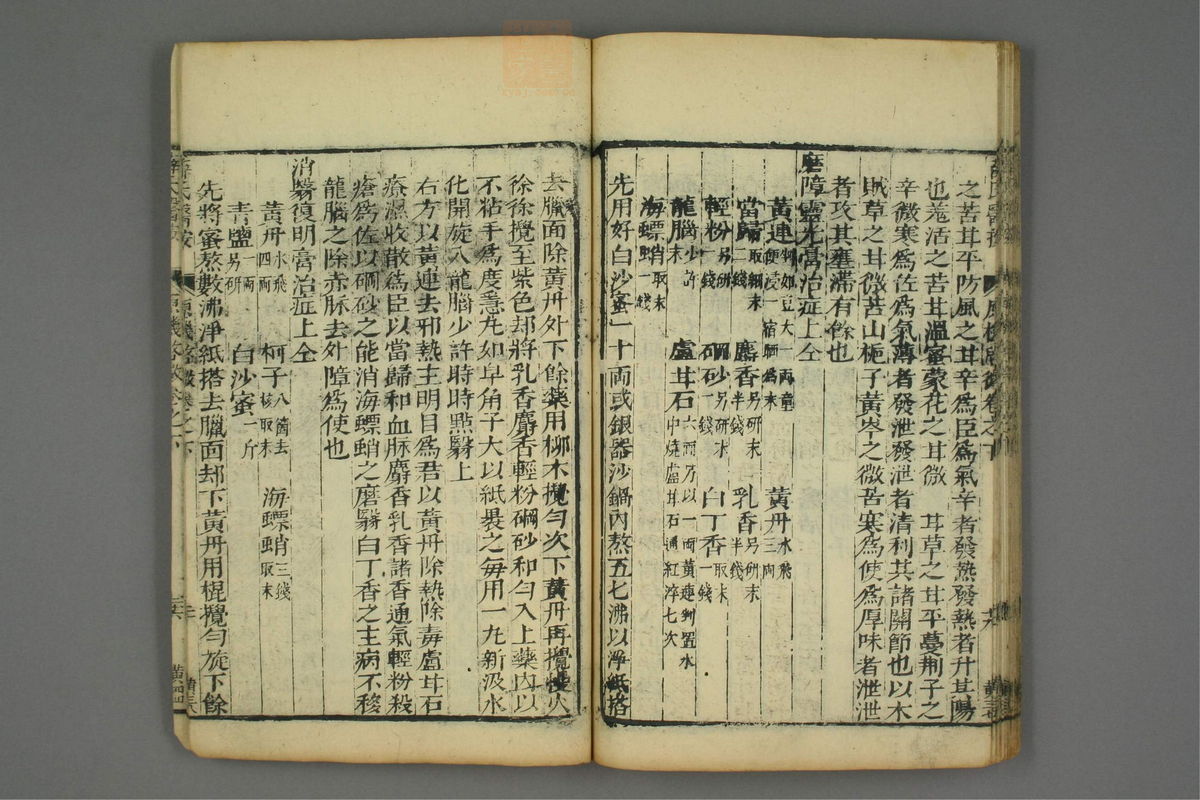 之苦甘平防風之甘辛為臣為氣辛者發熱發熱者升其陽
也羗活之苦甘溫蜜蒙花之甘微 甘草之甘平蔓荊子之
辛微寒為佐為氣薄者發泄發泄者清利其諸關節也以木
賊草之甘微苦山梔子黃芩之微苦寒為使為厚味者泄泄
者攻其壅滯有餘也
磨障靈光膏治症上仝
黃連剉如豆大一両童便浸一宿晒為末 黃丹水飛三両
當歸取細末二錢 麝香另研末半錢 乳香另研末半錢
輕粉另研一錢 硇砂另研末一錢 白丁香取末一錢
龍腦少許末 盧甘石六両乃以一両黃連剉置水中燒盧甘石通紅淬七次
海螵蛸取末一錢
先用好白沙蜜一十両或銀器沙鍋內熬五七沸以淨紙搭
去臘面除黃丹外下餘藥用柳木攪勻次下黃丹再攪慢火
徐徐攪至紫色却將乳香麝香輕粉硇砂和勻入上藥內以
不粘手為度急丸如皁角子大以紙褁之每用一丸新汲水
化開旋入龍腦少許時時點翳上
右方以黃連去邪熱主明目為君以黃丹除熱除毒盧甘石
療濕收散為臣以當歸和血脉麝香乳香諸香通氣輕粉殺
瘡為佐以硇砂之能消海螵蛸之磨翳白丁香之主病不移
龍腦之除赤脉去外障為使也
消翳復明膏治症上仝
黃丹水飛四両 柯子八箇去核取末 海螵蛸三錢取末
青鹽另研一両 白沙蜜一斤
先將蜜熬數沸淨紙搭去臘面却下黃丹用棍攪勻旋下餘